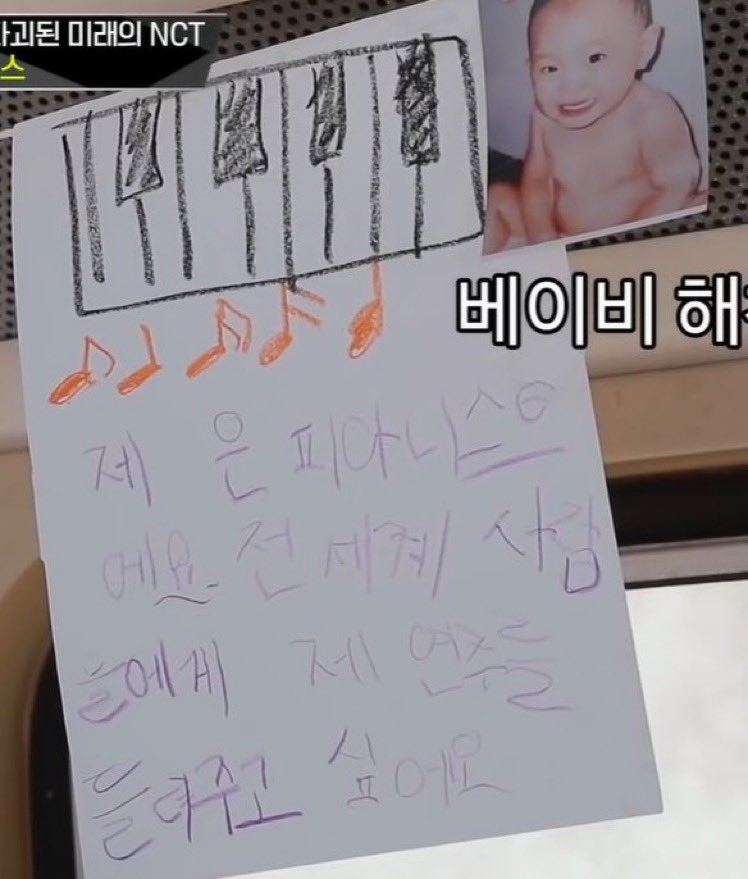 괴된 미래의 NCT
스
베이비 해
제 은 피아니스트
에요. 전 세계 사람
들에게 제 연주를
들려주고 싶어요